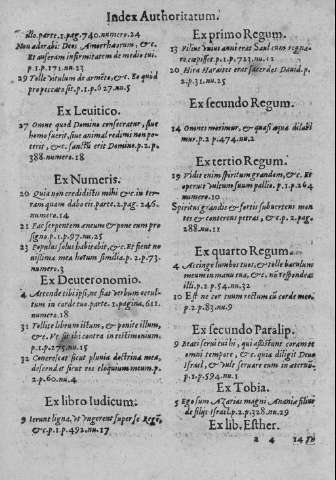 Index Authoritatum.
illo. parte. 2. pag. 740. numero. 24
Non adorabis Deos Amorrhæorum, &c.
Et auferam infirmitatem de medio tui.
p. 1. p. 171. nu. 23
29 Tolle vitulum de armēto, &c. Et quid
pro peccato sit. p. 1. p. 627. nu. 5
Ex Leuitico.
27 Omne quod Domino consecratur, siue
homo fuerit, siue animal redimi non po-
terit, &c. sanctū erit Domino. p. 2. p.
388. numero. 18
Ex Numeris.
20 Quia non credidistis mihi &c. in ter-
ram quam dabo eis. parte. 2. pag. 246.
numero. 14
21 Fac serpentem æneum & pone eum pro
signo. p. 1. p. 97. nu. 25
23 Populus solus habitabit, &c. Et fient no
uissima mea horum similia. p. 2. p. 73.
numero. 3
Ex Deuteronomio.
4 Attende tibi ipsi, ne fiat verbum occul-
tum in corde tuo. parte. 2. pagina. 611.
numero. 18
31 Tollite librum istum, & ponite illum,
&c. Vt sit ibi contra in testimonium.
p. 1. p. 275. nu. 15
32 Concrescat sicut pluuia doctrina mea,
defluat sicut ros eloquium meum. p.
2. p. 60. nu. 4
Ex libro Iudicum.
9 Ierunt ligna, vt vngerent super se Regē,
&c. p. 1. p. 492. nu. 17
Ex primo Regum.
13 Filius vnius anni erat Saul cum regna-
re cœpisset. p. 1. p. 723. nu. 11
20 Hira Harates erat sacerdos Dauid. p.
2. p. 31. nu. 25
Ex secundo Regum.
14 Omnes morimur, & quasi aquæ dilabi
mur. p. 2. p. 474. nu. 2
Ex tertio Regum.
19 Vidit enim spiritum grandem, &c. Et
operuit vultum suum pallio. p. 1. p. 264
numero. 10
Spiritus grandis & fortis subuertens mon
tes & conterens petras, &c. p. 2. pag.
288. nu. 11
Ex quarto Regum.
4 Accinge lumbos tuos, et tolle baculum
meum in manu tua, &c. nō respondeas
illi. p. 2. p. 54. nu. 32
10 Est ne cor tuum rectum cū corde meo.
p. 2. p. 83. nu. 9
Ex secundo Paralip.
9 Beati serui tui hi, qui assistunt coram te
omni tempore, &c. quia diligit Deus
Israel, & vult seruare eum in æternū.
p. 1. p. 594. nu. 1
Ex Tobia.
5 Ego sum Azarias magni Ananiæ filius
de filijs Israel. p. 2. p. 328. nu. 29
Ex lib. Esther.
a 4 14